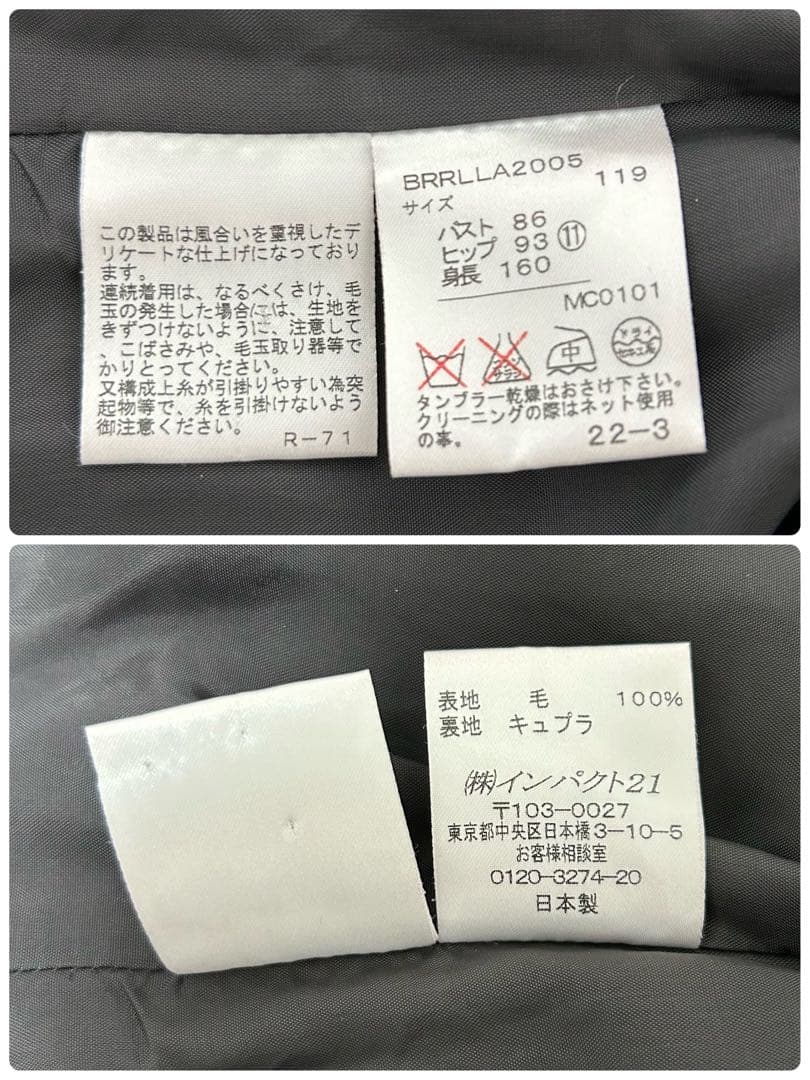 この製品は風合いを重視したデ
リケートな仕上げになっており
ます。
連続着用は、なるべくさけ、毛
玉の発生した場合には、生地を
きずつけないように、注意して
、こばさみや、毛玉取り器等で
かりとってください。
又構成上糸が引掛りやすい為突
起物等で、糸を引掛けないよう
御注意ください。
R-71
BRRLLA2005
119
サイズ
バスト 86
ヒップ 93 ⑪
身長 160
MC0101
エンソ
サラシ
中
ドライ
セキユ系
タンブラー乾燥はおさけ下さい。
クリーニングの際はネット使用
の事。
22-3
表地 毛 100%
裏地 キュプラ
㈱インパクト21
〒103-0027
東京都中央区日本橋3-10-5
お客様相談室
0120-3274-20
日本製